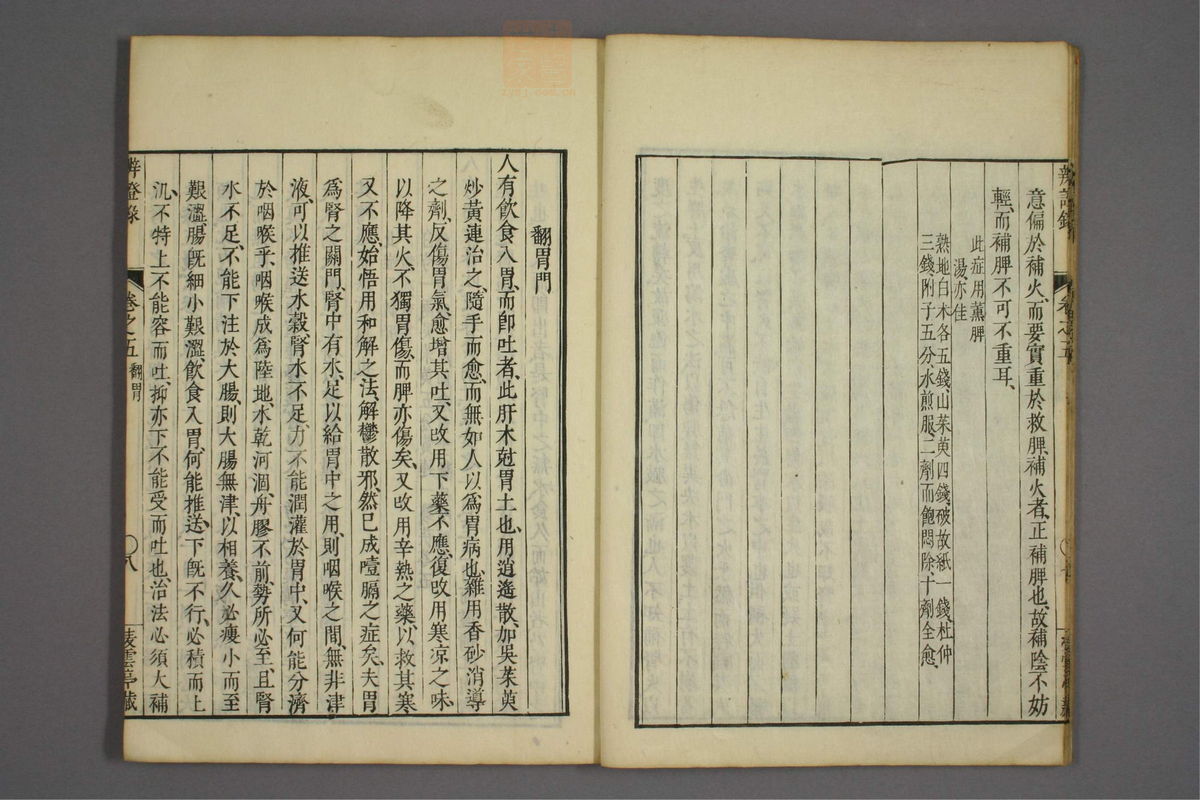 意偏於補火、而要實重於救脾、補火者、正補脾也、故補陰不妨
輕、而補脾不可不重耳、
此症用薰脾
湯亦佳
熟地白朮各五錢山茱萸四錢、破故紙一錢、杜仲
三錢、附子五分、水煎服二劑而飽悶除十劑全愈、
翻胃門
人有飲食入胃、而卽吐者、此肝木尅胃土也、用逍遙散、加吳茱萸
炒黃連治之、隨手而愈、而無如人以爲胃病也、雜用香砂消導
之劑、反傷胃氣、愈增其吐、又改用下藥不應、復改用寒凉之味、
以降其火、不獨胃傷、而脾亦傷矣、又改用辛熱之藥、以救其寒、
又不應、始悟用和解之法、解鬱散邪、然已成噎膈之症矣、夫胃
爲腎之關門、腎中有水、足以給胃中之用、則咽喉之間、無非津
液、可以推送水穀、腎水不足、力不能潤灌於胃中、又何能分濟
於咽喉乎、咽喉成爲陸地、水乾河涸、舟膠不前、勢所必至、且腎
水不足、不能下注於大腸、則大腸無津、以相養、久必瘦小而至
艱澀、腸旣細小艱澀、飲食入胃、何能推送、下旣不行、必積而上
沉、不特上不能容而吐、抑亦下不能受而吐也、治法必須大補
辨證錄
卷之五
翻胃
八
凌雲亭藏